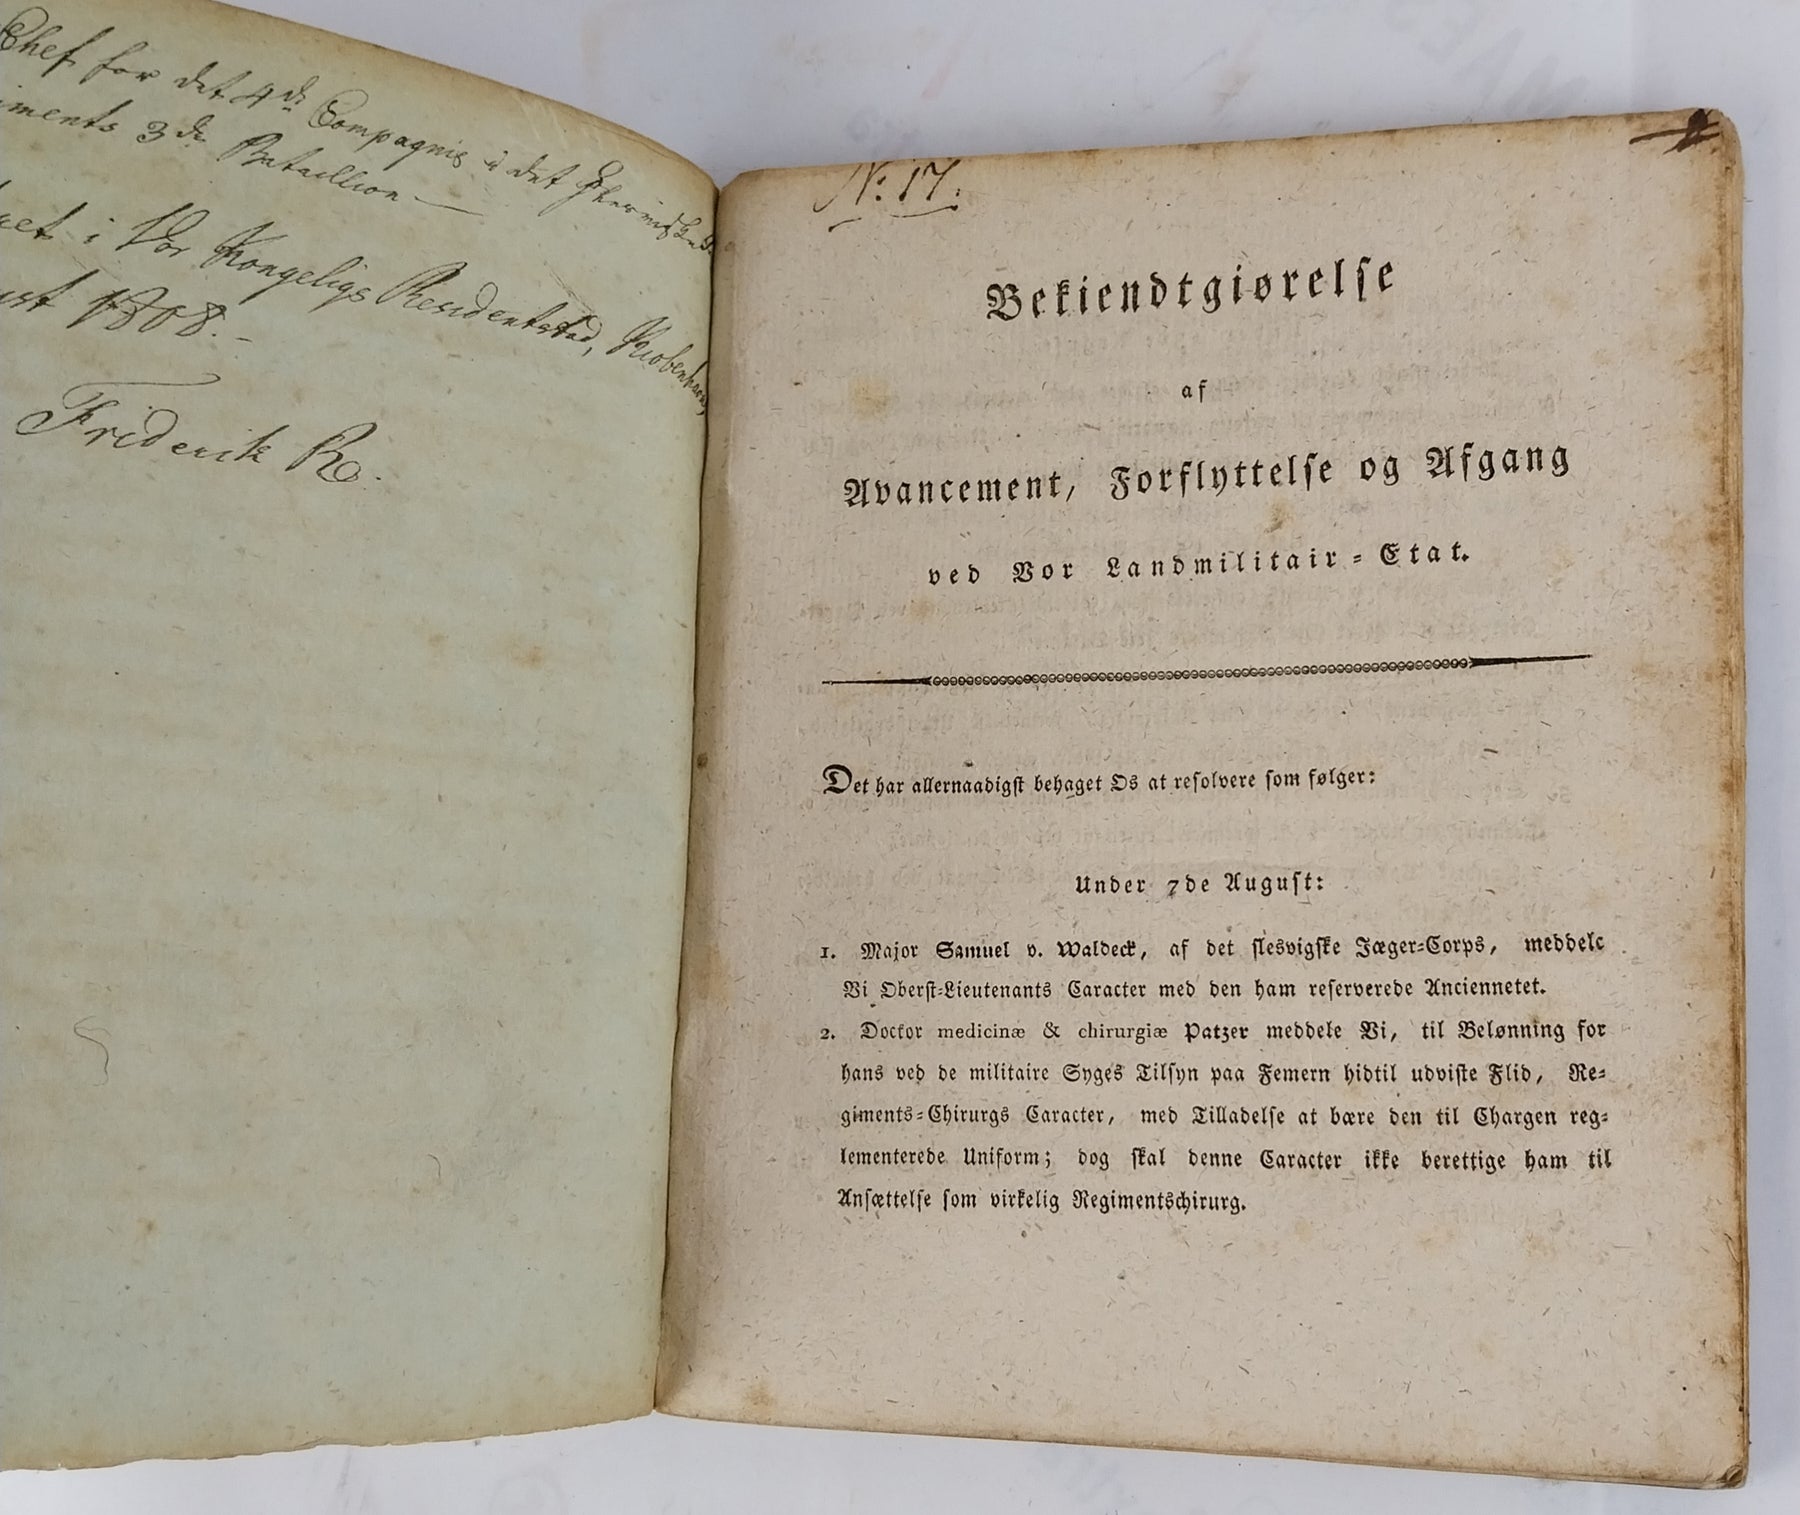 Chef for det 4de Compagnie i det
iments 3die Bataillion —
i Vor Kongelige Residentstad, Kiøbenhavn,
ust 1808.-
Friderik R.
N: 17.
Bekiendtgiørelse
af
Avancement, Forflyttelse og Afgang
ved Vor Landmilitair-Etat.
Det har allernaadigst behaget Os at resolvere som følger:
Under 7de August:
1. Major Samuel v. Waldeck, af det slesvigske Jæger-Corps, meddele
Vi Oberst-Lieutenants Caracter med den ham reserverede Anciennetet.
2. Doctor medicinæ & chirurgiæ Patzer meddele Vi, til Belønning for
hans ved de militaire Syges Tilsyn paa Femern hidtil udviste Flid, Re-
giments-Chirurgs Caracter, med Tilladelse at bære den til Chargen reg-
lementerede Uniform; dog skal denne Caracter ikke berettige ham til
Ansættelse som virkelig Regimentschirurg.